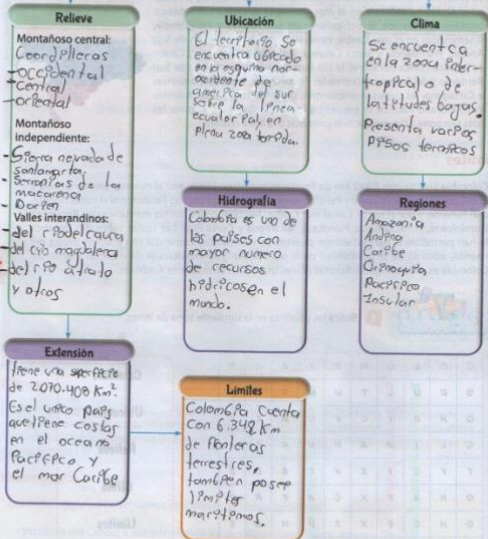 Relieve
Montañoso central:
Coordilleras
-occidental
-Central
-oriental
Montañoso
independiente:
- Cierra nevada de
santamarta,
- Serranias de la
macarena
- Darien
Valles interandinos:
-del rio del cauca
-del rio magdalena
-del rio atrato
y otros
Ubicación
El territorio se
encuentra ubicado
en la esquina nor-
occidente de
america del sur
sobre la linea
ecuatorial, en
plena zona torrida.
Clima
Se encuentra
en la zona inter-
tropical o de
latitudes bagas.
Presenta varios
pisos termicos
Hidrografía
Colombia es uno de
los paises con
mayor numero
de recursos
hidricos en el
mundo.
Regiones
Amazonia
Andina
Caribe
Orinoquia
Pacifico
Insular
Extensión
tiene una superficie
de 2.070.408 Km².
Es el unico pais
que tiene costas
en el oceano
Pacifico y
el mar Caribe
Límites
Colombia cuenta
con 6.342 Km
de fronteras
terrestres,
tambien posee
limites
maritimos.